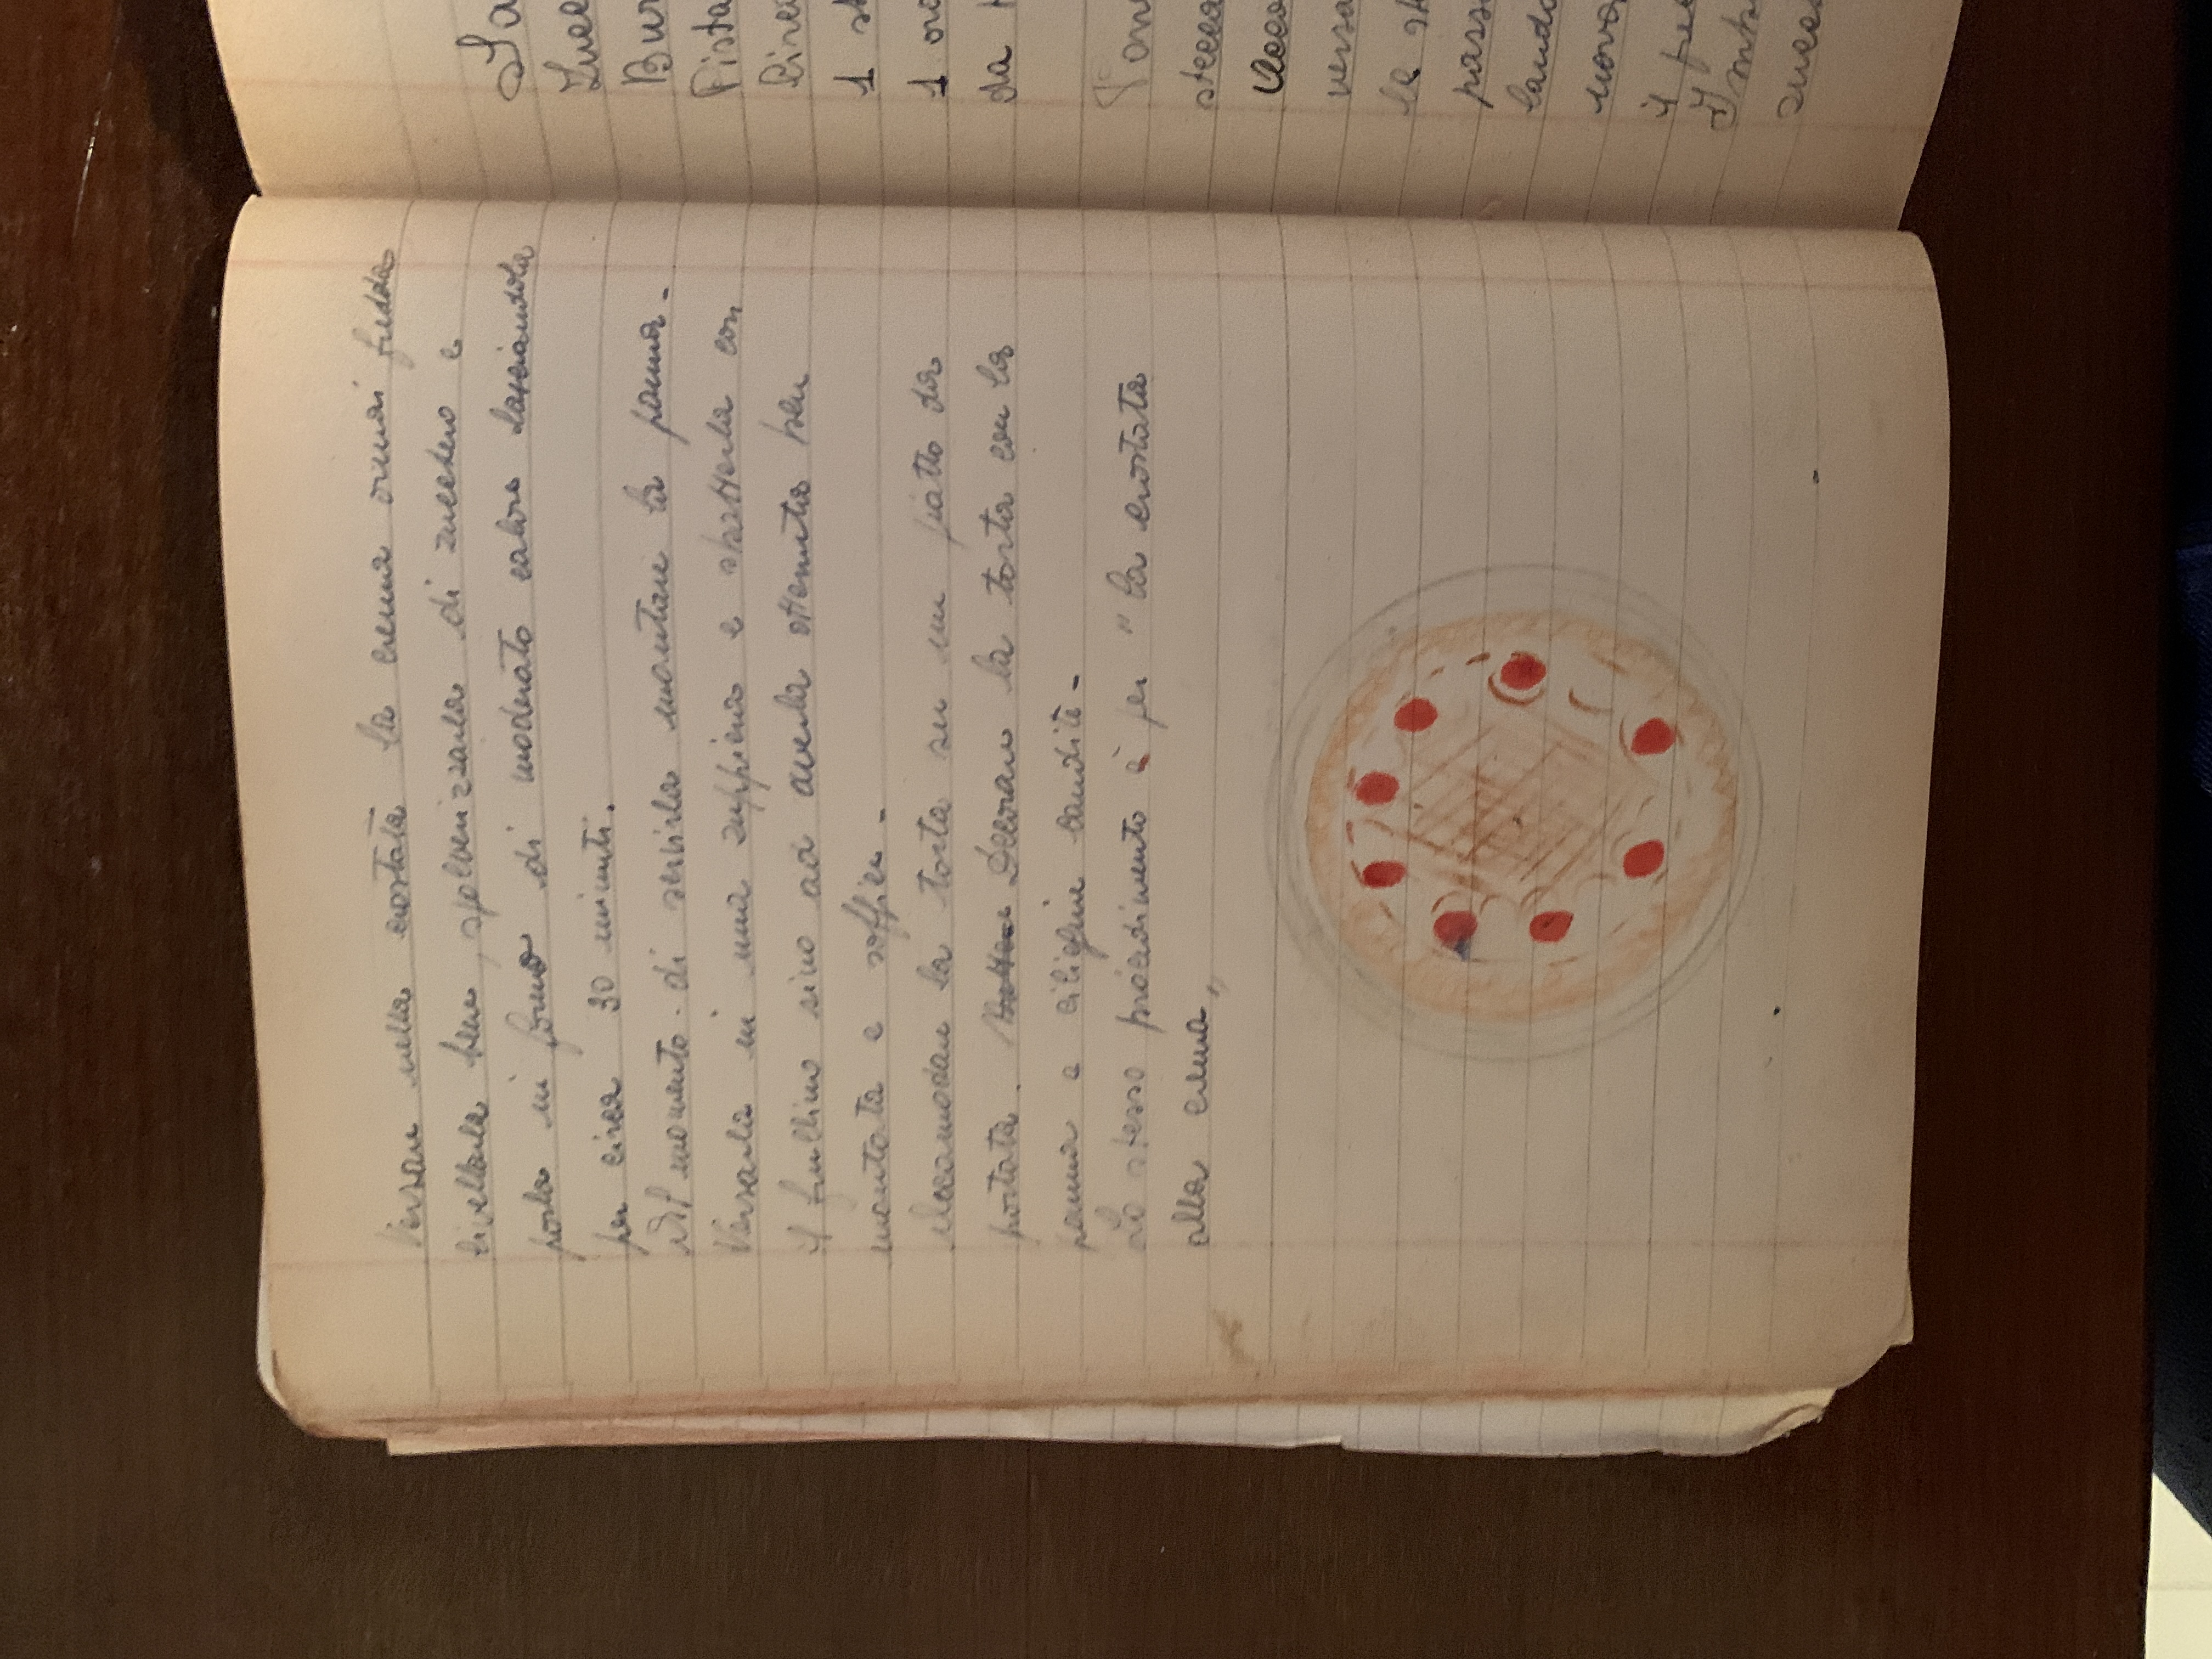 Versare nella crostata la crema ormai fredda
livellarla bene, spolverizzarla di zucchero e
porla in forno di moderato calore lasciandola
per circa 30 minuti.
Al momento di servirla montare la panna -
Versarla in una zuppiera e sbatterla con
il frullino sino ad averla ottenuta ben
montata e soffice -
Accomodare la torta su un piatto da
portata. Decorare la torta con la
panna e ciliegine candite -
Lo stesso procedimento è per "la crostata
alla crema„
Zucc
Bur
Pista
Circa
1 st
1 
da
stecca
Acco
versa
la st
passa
lando
nova
il
zucc